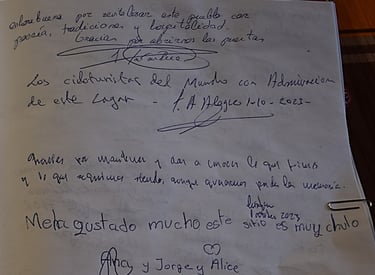 enhorabuena por revitalizar este pueblo con
poesía, tradiciones y hospitalidad.
Gracias por abrirnos las puertas
Los cicloturistas del Mundo con Admiración
de este Lugar - 1-10-2023-
Gracias por mantener y dar a conocer lo que fuimos
y lo que seguimos siendo, aunque perder la memoria.
2023
Me ha gustado mucho este sitio es muy chulo
Ana y Jorge y Alice